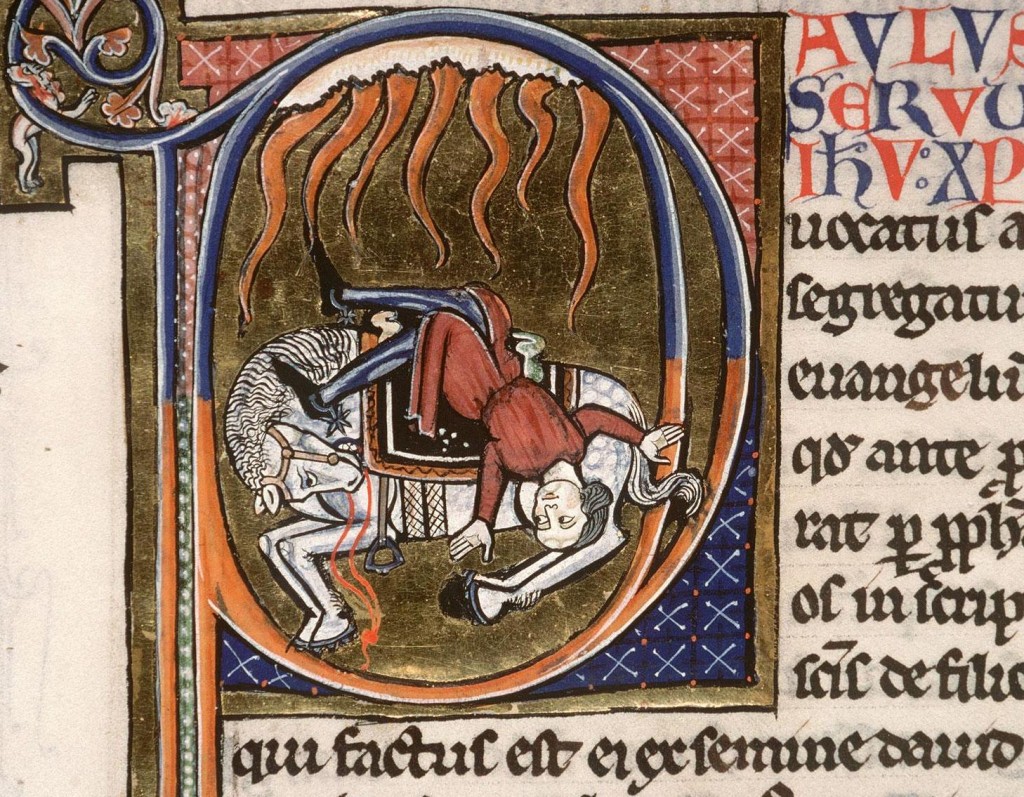 PAULUS
SERVU
IHV XP
uocatus a
segregatu
euangeliū
qd ante p
rat p pph
os in scrip
scis de filio
qui factus est ei ex semine dauid